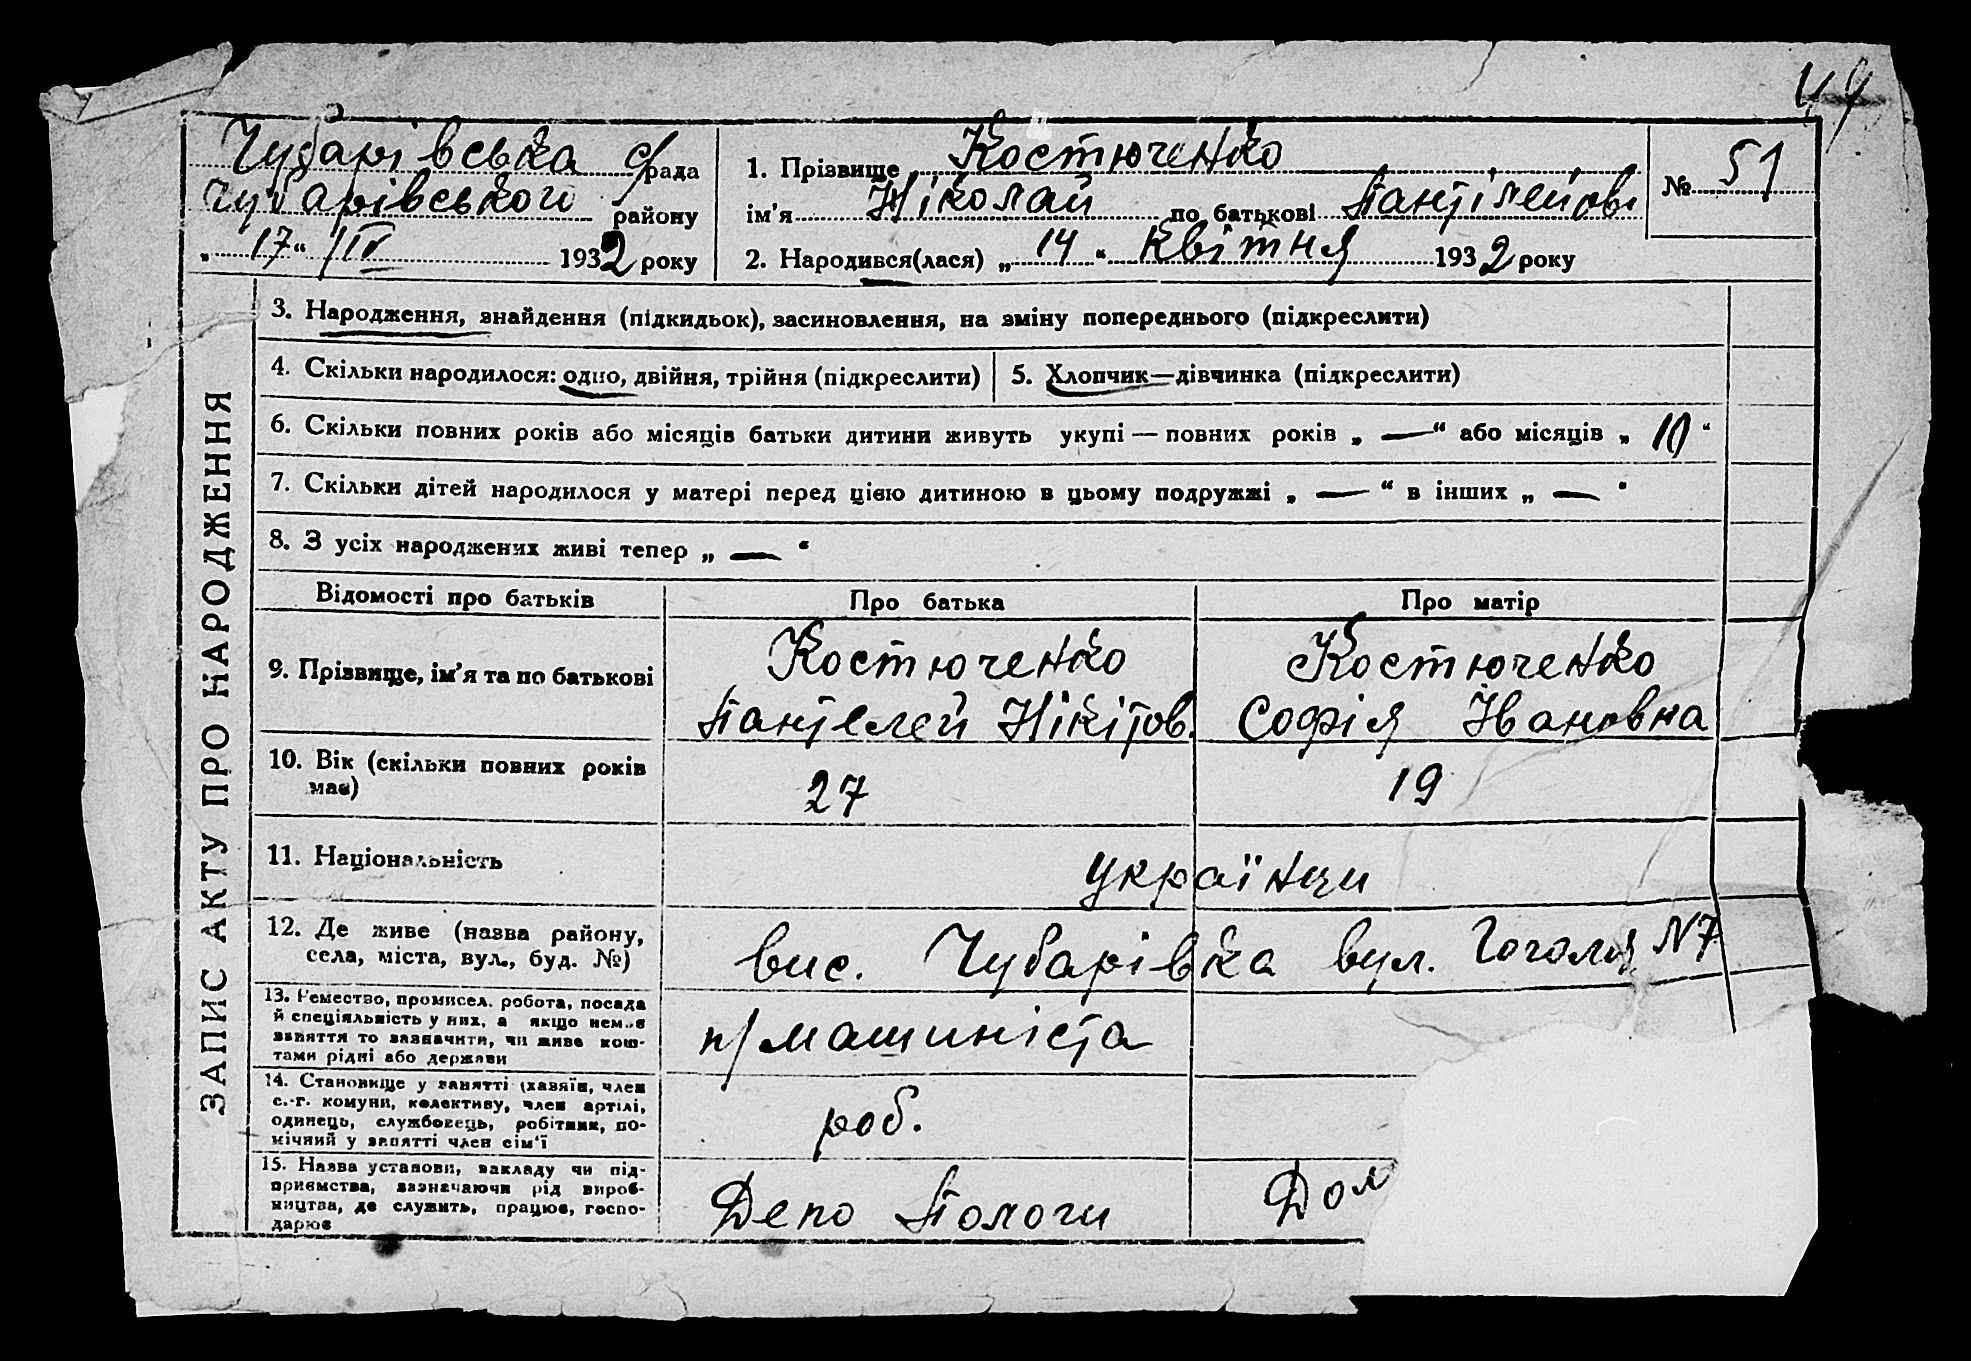 49
Чубарівська с/рада
Чубарівського району
„ 17 “ IV 1932 року
1. Прізвище Костюченко
ім’я Ніколай по батькові Пантілейов
2. Народився(лася) „ 14 “ квітня 1932 року
№ 51
ЗАПИС АКТУ ПРО НАРОДЖЕННЯ
3. Народження, знайдення (підкидьок), засиновлення, на зміну попереднього (підкреслити)
4. Скільки народилося: одно, двійня, трійня (підкреслити)
5. Хлопчик—дівчинка (підкреслити)
6. Скільки повних років або місяців батьки дитини живуть укупі — повних років „ — “ або місяців „ 10 “
7. Скільки дітей народилося у матері перед цією дитиною в цьому подружжі „ — “ в інших „ — “
8. З усіх народжених живі тепер „ — “
Відомості про батьків
Про батька
Про матір
9. Прізвище, ім’я та по батькові
Костюченко
Пантелей Нікітов.
Костюченко
Софія Івановна
10. Вік (скільки повних років
має)
27
19
11. Національність
українци
12. Де живе (назва району,
села, міста, вул., буд. №)
вис. Чубарівка вул. Гоголя N7
13. Ремество, промисел, робота, посада
й спеціяльність у них, а якщо немає
заняття то зазначити, чи живе кош-
тами рідні або держави
п/машиніста
14. Становище у занятті (хазяїн, член
с.-г. комуни, колективу, член артілі,
одинець, службовець, робітник, по-
мічний у занятті член сім’ї
роб.
15. Назва установи, закладу чи під-
приємства, зазначаючи рід вироб-
ництва, де служить, працює, госпо-
дарює
Депо Пологи
Дом